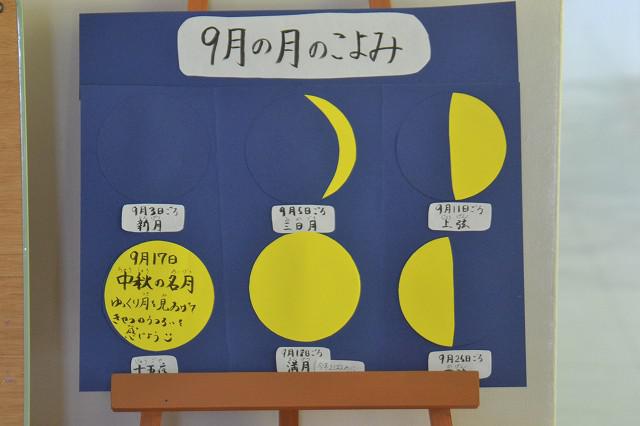 9月の月のこよみ
9月3日ごろ
新月
9月5日ごろ
三日月
9月11日ごろ
上弦
9月17日
中秋の名月
ゆっくり月を見あげて
きせつのうつろいを
感じよう
十五夜
9月18日ごろ
満月
9月25日ごろ